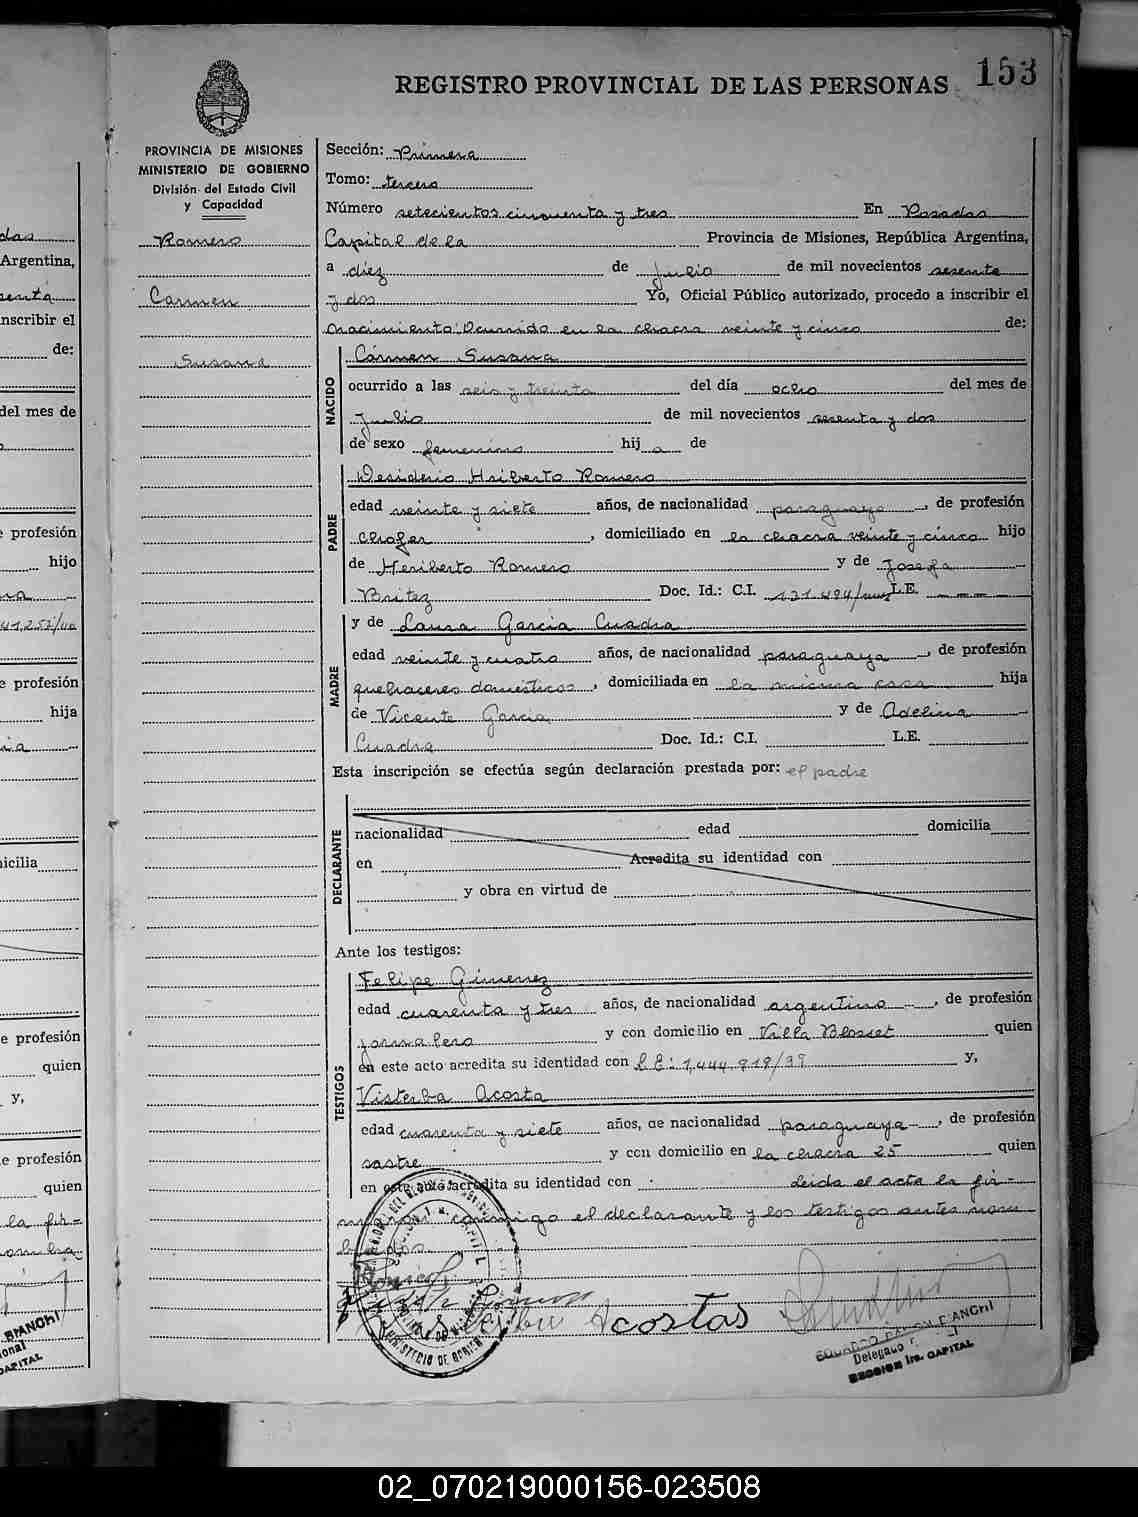 153
REGISTRO PROVINCIAL DE LAS PERSONAS
PROVINCIA DE MISIONES
MINISTERIO DE GOBIERNO
División del Estado Civil
y Capacidad
Romero
Carmen
Susana
Sección: Primera
Tomo: tercero
Número setecientos cincuenta y tres En Posadas
Capital de la Provincia de Misiones, República Argentina,
a diez de Julio de mil novecientos sesenta
y dos Yo, Oficial Público autorizado, procedo a inscribir el
nacimiento: Ocurrido en la chacra veinte y cinco de:
NACIDO
Cármen Susana
ocurrido a las seis y treinta del día ocho del mes de
Julio de mil novecientos sesenta y dos
de sexo femenino hija de
PADRE
Desiderio Hriberto Romero
edad veinte y siete años, de nacionalidad paraguayo, de profesión
chofer, domiciliado en la chacra veinte y cinco hijo
de Heriberto Romero y de Josefa
Britez Doc. Id.: C.I. 131.494/ L.E. — — —
MADRE
y de Laura Garcia Cuadra
edad veinte y cuatro años, de nacionalidad paraguaya, de profesión
quehaceres domésticos, domiciliada en la misma casa hija
de Vicente Garcia y de Adelina
Cuadra Doc. Id.: C.I. L.E.
Esta inscripción se efectúa según declaración prestada por: el padre
DECLARANTE
nacionalidad edad domicilia
en Acredita su identidad con
y obra en virtud de
Ante los testigos:
TESTIGOS
Felipe Gimenez
edad cuarenta y tres años, de nacionalidad argentino, de profesión
jornalero y con domicilio en Villa Blosset quien
en este acto acredita su identidad con L E: 1,444.919/39 y,
Visterba Acosta
edad cuarenta y siete años, de nacionalidad paraguaya, de profesión
sastre y con domicilio en la chacra 25 quien
en este acto acredita su identidad con Leida el acta la fir-
conmigo el declarante y los testigos antes nom
brados.
Acostas
Delegado
SECCION 1ra. CAPITAL
das
Argentina,
senta
inscribir el
de:
del mes de
e profesión
hijo
41.257/40
e profesión
hija
icilia
e profesión
quien
y,
e profesión
quien
la fir-
nombra
BIANCHI
CAPITAL
02_070219000156-023508